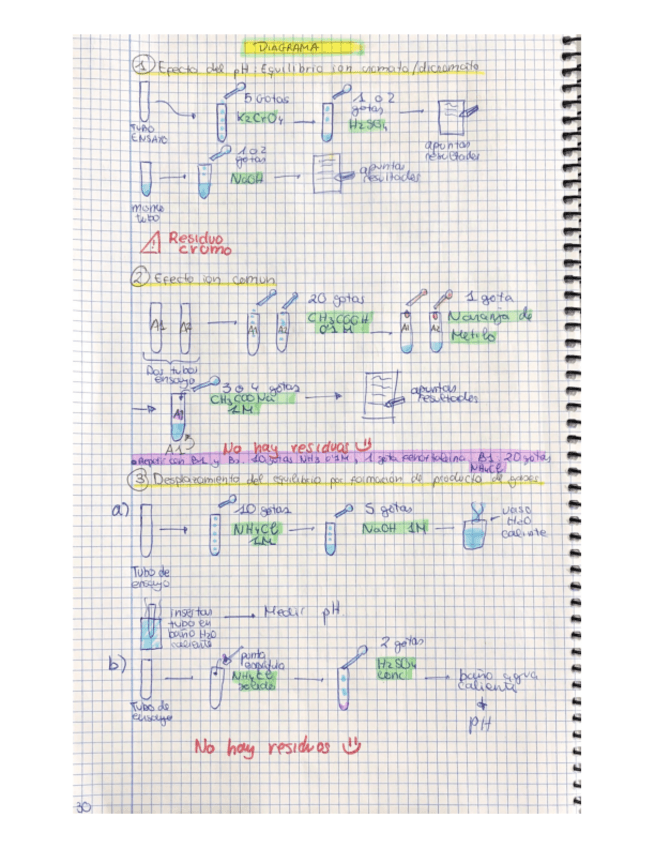 DIAGRAMA
① Efecto del pH: Equilibrio ion cromato/dicromato
5 Gotas K2CrO4
1 o 2 gotas H2SO4
TUBO ENSAYO
apuntas resultados
1 o 2 gotas NaOH
apuntas resultados
mismo tubo
⚠ Residuo cromo
② Efecto ion comun
A1 A2
20 gotas CH3COOH 0'1 M
A1 A2
1 gota Naranja de Metilo
A1 A2
Dos tubos ensayo
3 o 4 gotas CH3COONa 1M
A1
apuntas resultados
A1
No hay residuos
• Repetir con B1 y B2. 10 gotas NH3 0'1M, 1 gota fenolftaleina. B1 20 gotas
NH4Cl
③ Desplazamiento del equilibrio por formación de producto de gases
a)
10 gotas NH4Cl 1M
5 gotas NaOH 1M
vaso H2O caliente
Tubo de ensayo
insertar tubo en baño H2O caliente
Medir pH
b)
punta espátula NH4Cl solido
2 gotas H2SO4 conc
baño agua caliente
pH
Tubo de ensayo
No hay residuos
30